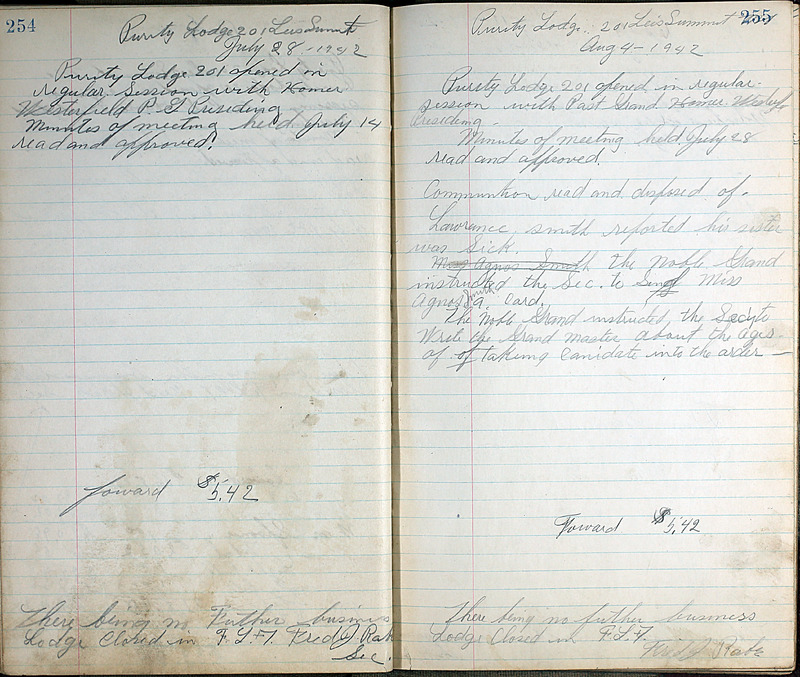 254
Purity Lodge 201 Leis Summit
July 28 - 1942
Purity Lodge 201 opened in
regular session with Homer
Westerfield P. G Presiding
Minutes of meeting held July 14
read and approved.
foward $5.42
There being no Futher busines
Lodge Closed in F.L.T. Fred J Rabe
Sec.
255
Purity Lodge. 201 Leis Summit
Aug 4 - 1942
Purity Lodge 201 opened in regular
session with Past Grand Homer Westerf
Presiding.
Minutes of meeting held July 28
read and approved.
Communtion read and disposed of.
Lawrence smith reported his sister
was Sick.
Miss Agnos Smith the Noble Grand
instructed the Sec. to Send Miss
Agnos Smith a. Card.
The Noble Grand instructed the Secy to
Write the Grand master about the ages
of of taking canidate into the order —
Foward $5.42
There being no futher business
Lodge Closed in F.L.T.
Fred J Rabe